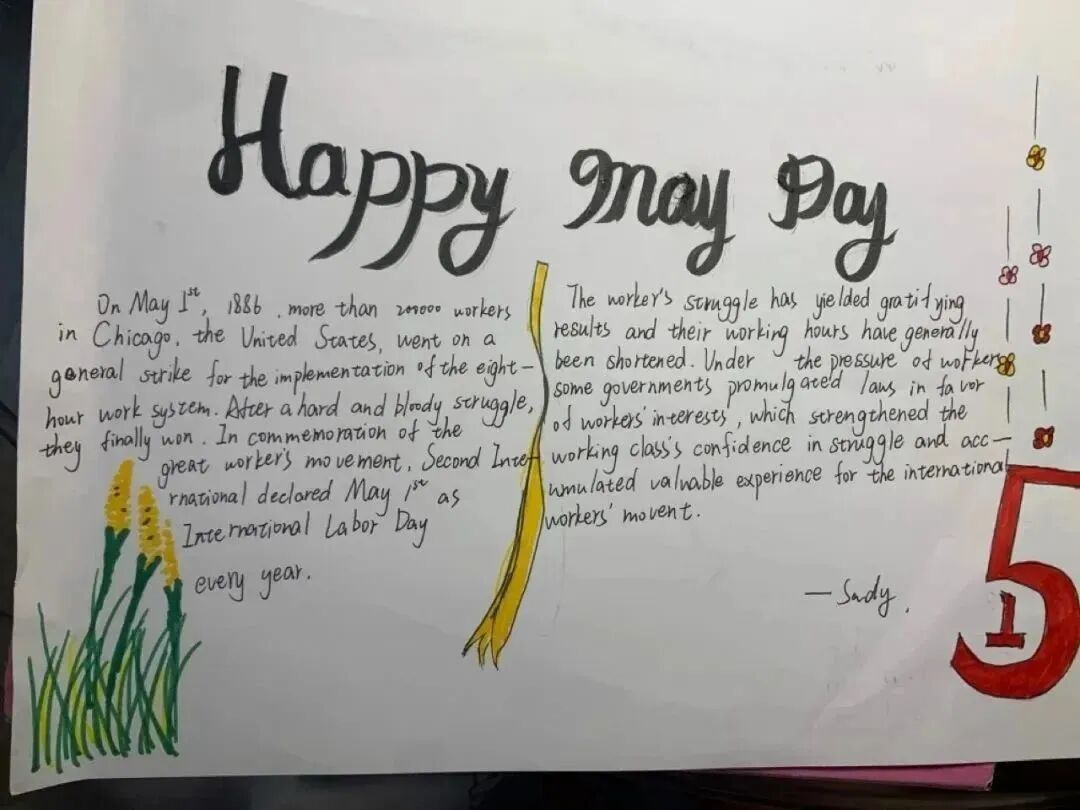 Happy May Day
On May 1st, 1886, more than 200000 workers
in Chicago, the United States, went on a
general strike for the implementation of the eight-
hour work system. After a hard and bloody struggle,
they finally won. In commemoration of the
great worker's movement, Second Inte-
rnational declared May 1st as
International Labor Day
every year.
The worker's struggle has yielded gratifying
results and their working hours have generally
been shortened. Under the pressure of workers
some governments promulgated laws in favor
of workers' interests, which strengthened the
working class's confidence in struggle and acc-
umulated valuable experience for the international
workers' movent.
— Sndy.
5
1